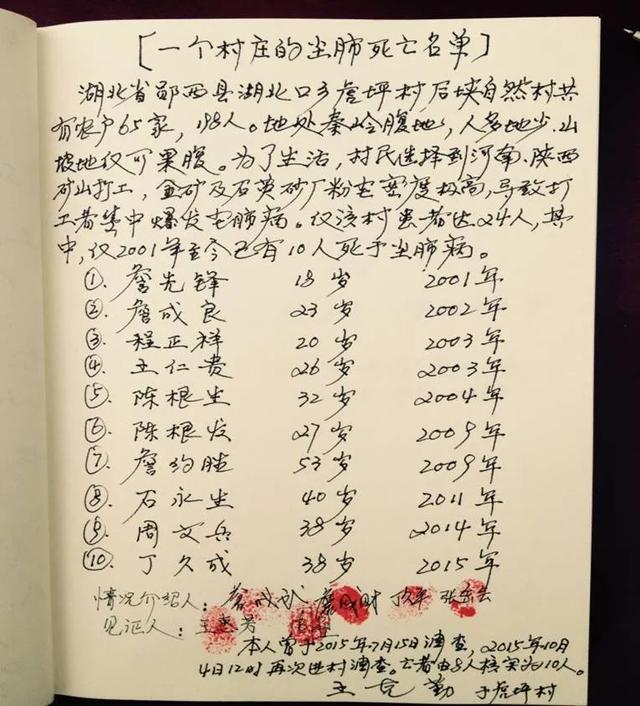 [一个村庄的尘肺死亡名单]
湖北省郧西县湖北口乡虎坪村后坡自然村共
有农户65家，198人。地处秦岭腹地，人多地少，山
坡地仅可果腹。为了生活，村民选择到河南、陕西
矿山打工，金矿及石英砂厂粉尘密度极高，导致打
工者集中爆发尘肺病。仅该村患者达24人，其
中，仅2001年至今已有10人死于尘肺病。
①. 詹先锋 18岁 2001年
②. 詹成良 23岁 2002年
③. 程正祥 20岁 2003年
④. 王仁贵 26岁 2003年
⑤. 陈根生 32岁 2004年
⑥. 陈根发 27岁 2009年
⑦. 詹约胜 53岁 2009年
⑧. 石永生 40岁 2011年
⑨. 周文兵 38岁 2014年
⑩. 丁久成 38岁 2015年
情况介绍人：詹成武 詹成财
见证人：
本人曾于2015年7月15日调查，2015年10月
4日12时再次进村调查。亡者由8人核实为10人。
王克勤 于虎坪村